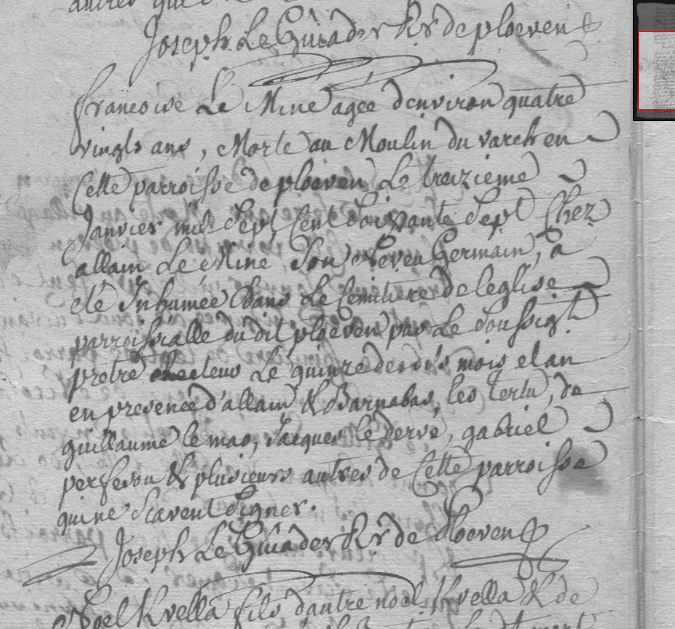 Joseph Le Guiader Rr de ploeven
francoise Le Mine agee denviron quatre
vingts ans, Morte au Moulin du varch en
Cette parroisse de ploeven Le traizieme
Janvier mil Sept Cent Soixante Sept Chez
allain Le Mine Son Neveu Germain, a
eté Inhumée dans Le Cemitiere de leglise
parroissialle du dit ploeven par Le Soussigt
pretre Le quinze desdts mois et an
en presence d'allain & Barnabas, les tertu, de
guillaume le mao, Jacques le derve, gabriel
& plusieurs autres de Cette parroisse
qui ne Scavent Signer.
Joseph Le Guiader Rr de Ploeven
Noel Kvella fils d'autre noel Kvella & de